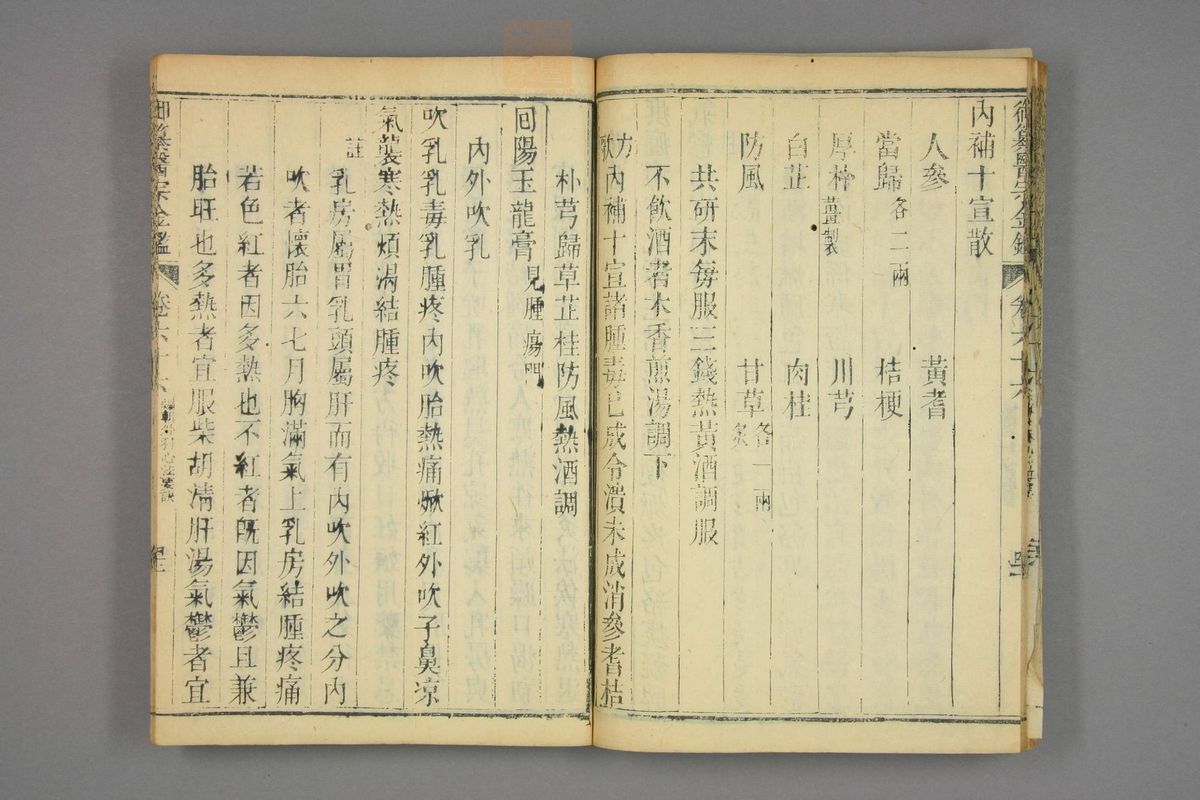 內補十宣散
人參　黃耆
當歸各二兩　桔梗
厚朴薑製　川芎
白芷　肉桂
防風　甘草炙各一兩
共研末每服三錢熱黃酒調服
不飲酒者木香煎湯調下
方歌內補十宣諸腫毒已成令潰未成消參耆桔
朴芎歸草芷桂防風熱酒調
回陽玉龍膏見腫瘍門
內外吹乳
吹乳乳毒乳腫疼內吹胎熱痛焮紅外吹子鼻凉
氣襲寒熱煩渴結腫疼
註
乳房屬胃乳頭屬肝而有內吹外吹之分內
吹者懷胎六七月胸滿氣上乳房結腫疼痛
若色紅者因多熱也不紅者旣因氣鬱且兼
胎旺也多熱者宜服柴胡清肝湯氣鬱者宜
御纂醫宗金鑑　卷六